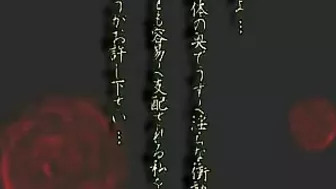 よ…
体の奥でうずく淫らな衝動
とも容易く支配される私を
うかお許し下さい…